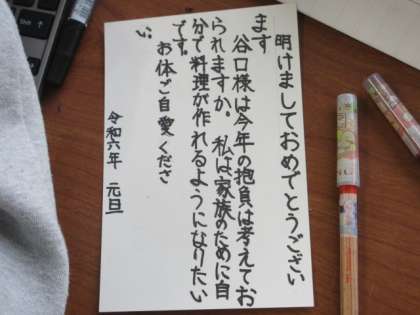 明けましておめでとうござい
ます
谷口様は今年の抱負は考えてお
られますか。私は家族のために自
分で料理が作れるようになりたい
です。
お体ご自愛くださ
い
令和六年 元旦